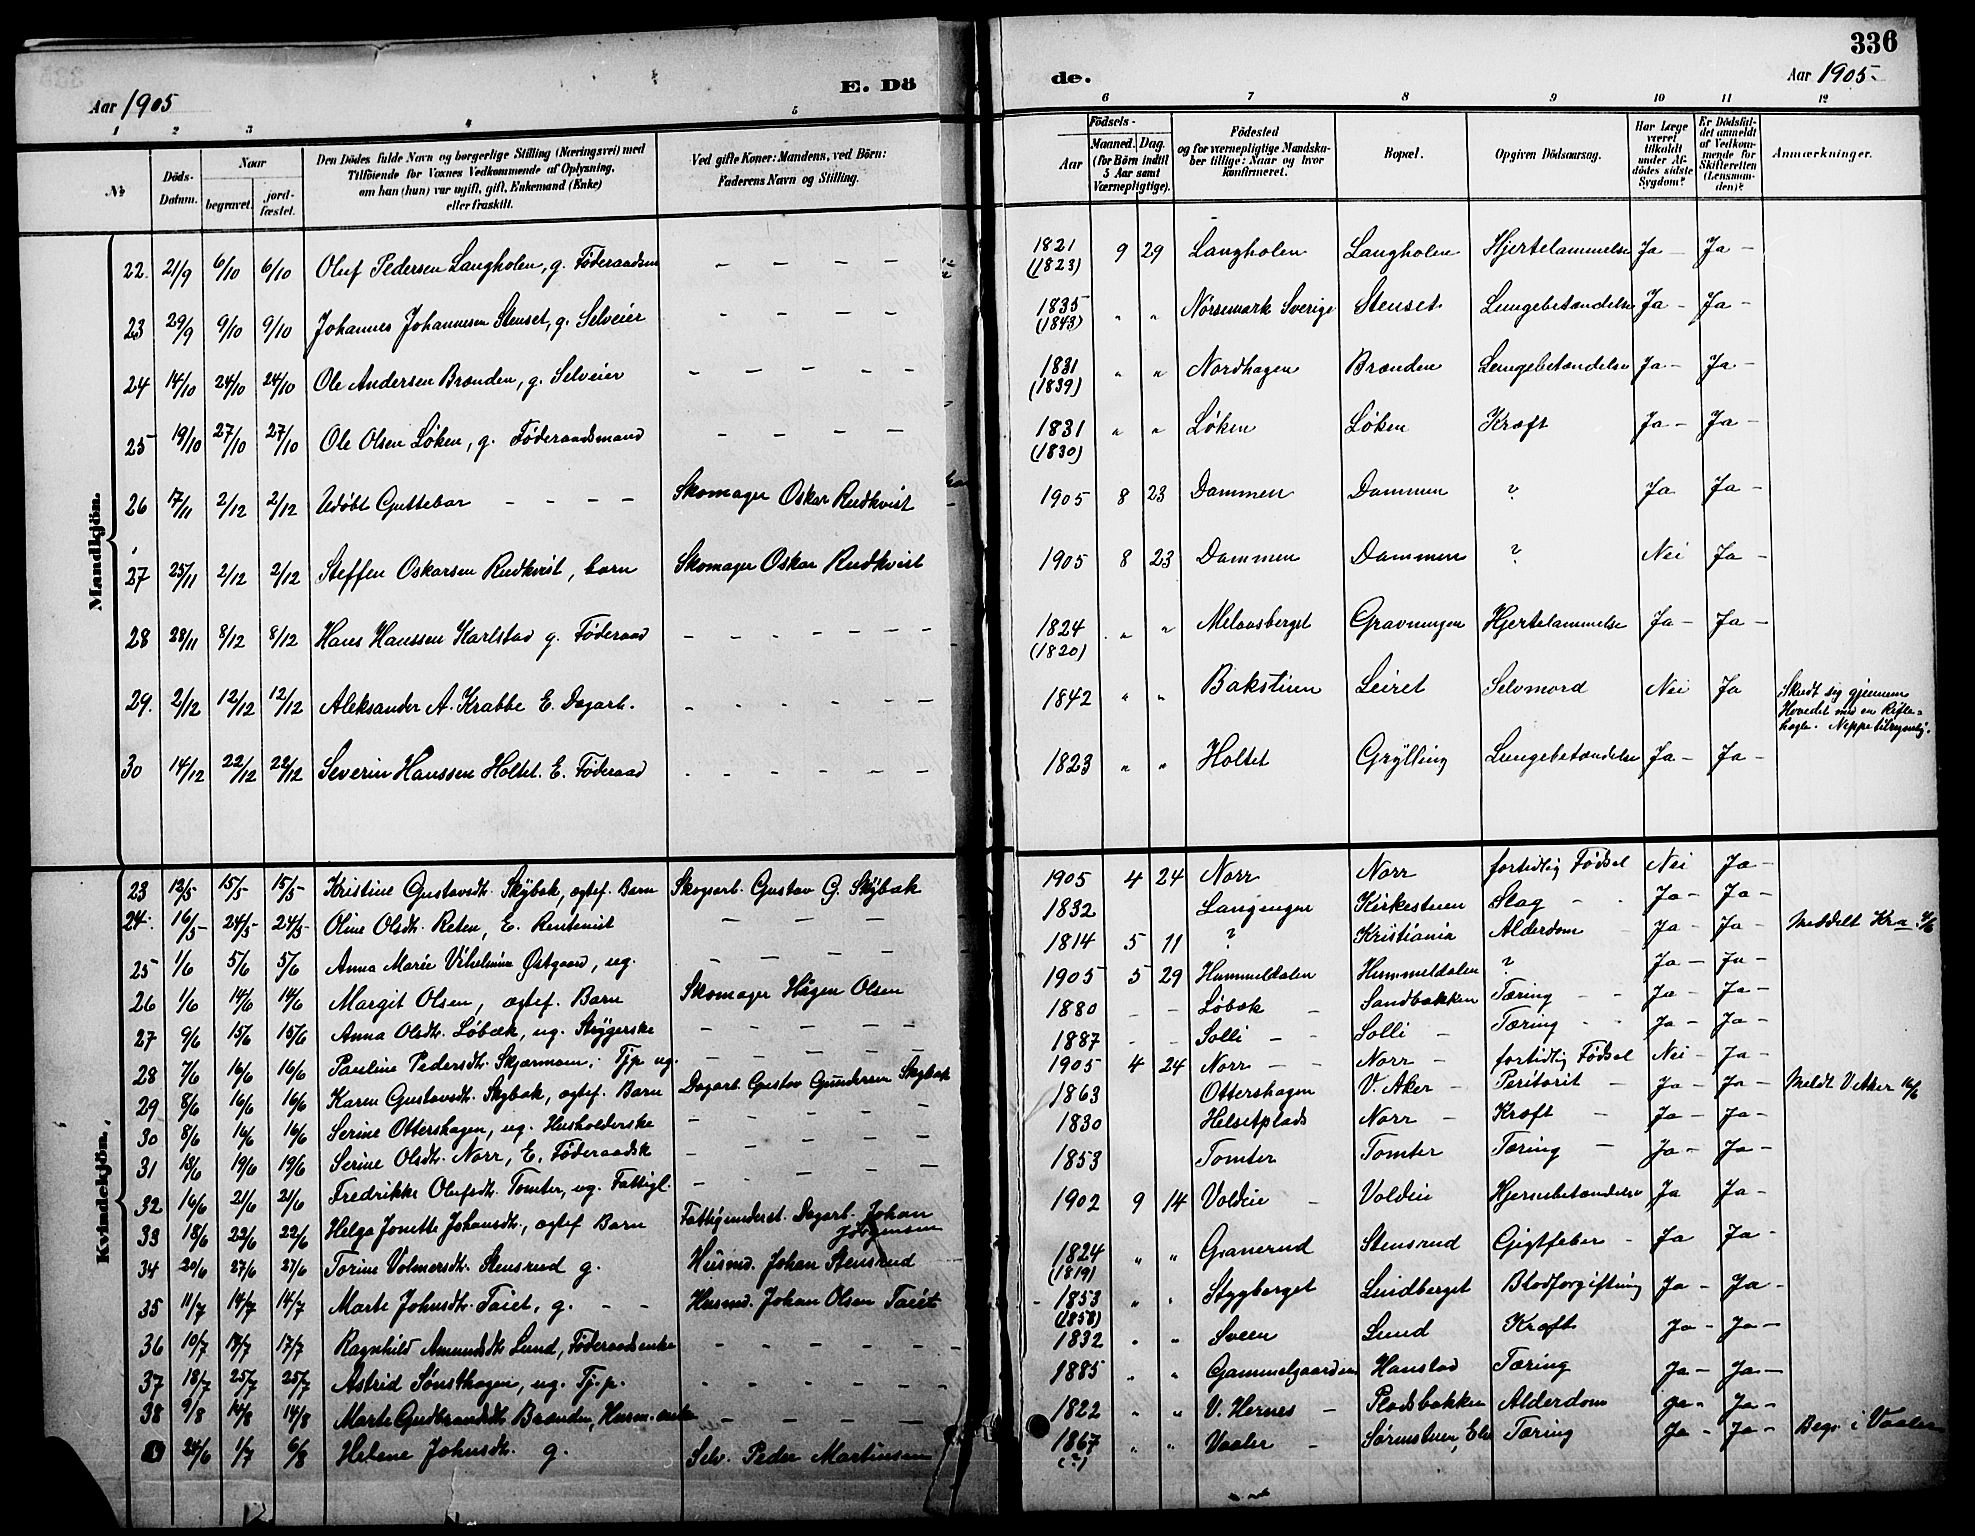 336
Aar 1905
E. Dö
de.
Aar 1905-
1 2 3 4 5 6 7 8 9 10 11 12
No
Döds-Datum.
Naar
begravet.
jord-fæstet.
Den Dödes fulde Navn og borgerlige Stilling (Næringsvei) med
Tilföiende for Voxnes Vedkommende af Oplysning,
om han (hun) var ugift, gift, Enkemand (Enke)
eller fraskilt.
Ved gifte Koner: Mandens, ved Börn:
Faderens Navn og Stilling.
Födsels-
Aar
Maaned. Dag.
(for Börn indtil
5 Aar samt
Værnepligtige).
Födested
og for værnepligtige Mandska-
ber tillige: Naar og hvor
konfirmeret.
Bopæl.
Opgiven Dödsaarsag.
Har Læge
været
tilkaldt
under Af-
dödes sidste
Sygdom?
Er Dödsfal-
det anmeldt
af Vedkom-
mende for
Skifteretten
(Lensman-
den)?
Anmærkninger.
Mandkjön.
22. 21/9 6/10 6/10 Oluf Pedersen Langholen, g. Föderaadsm - - - - 1821 (1823) 9 29 Langholen Langholen Hjertelammelse Ja - Ja -
23 29/9 9/10 9/10 Johannes Johannesen Stenset, g. Selveier - - - - 1835 (1843) " " Nörsemark Sverige Stenset Lungebetændelse Ja - Ja -
24 14/10 24/10 24/10 Ole Andersen Brænden, g. Selveier - - - - - 1831 (1839) " " Nordhagen Brænden Lungebetændelse Ja - Ja -
25 19/10 27/10 27/10 Ole Olsen Løken, g. Föderaadsmand - - - - 1831 (1830) " " Løken Løken Kræft Ja - Ja -
26 17/11 2/12 2/12 Udøbt Guttebar - - - - Skomager Oskar Rudkvist 1905 8 23 Dammen Dammen ? Ja Ja -
27 25/11 2/12 2/12 Steffen Oskarsen Rudkvist, barn Skomager Oskar Rudkvist 1905 8 23 Dammen Dammen ? Nei Ja -
28 28/11 8/12 8/12 Hans Hanssen Karlstad g. Föderaad - - - - - - 1824 (1820) " " Melaasberget Gravningen Hjertelammelse Ja - Ja -
29. 2/12 12/12 12/12 Aleksander A. Krabbe E. Dagarb. - - - - - - 1842 " " Bakstuen Leiret Selvmord Nei Ja Skudt sig gjennem
Hovedet med en Rifle-
kugle. Neppe tilregnelig.
30 14/12 22/12 22/12 Severin Hanssen Holtet. E. Föderaad - - - - - - 1823 " " Holtet Grylling Lungebetændelse Ja - Ja -
Kvindekjön.
23 13/5 15/5 15/5 Kristine Gustavsdtr. Skybak, ægtef. Barn Skogsarb. Gustav G. Skybak 1905 4 24 Norr Norr fortidlig Fødsel Nei Ja -
24. 16/5 24/5 24/5 Oline Olsdtr. Reten, E. Rentenist - - - 1832 Langengen Kirkestuen Slag - Ja - Ja -
25 1/6 5/6 5/6 Anna Marie Vilhelmine Østgaard, ug. - - - - 1814 5 11 ? Kristiania Alderdom Ja - Ja - Meddelt Kra
26 1/6 14/6 14/6 Margit Olsen, ægtef. Barn Skomager Hagen Olsen 1905 5 29 Hummeldalen Hummeldalen ? Ja - Ja -
27 9/6 15/6 15/6 Anna Olsdtr. Løbæk, ug. Strygerske - - - - - 1880 - - Løbæk - Sandbakken Tæring - - Ja - Ja -
28 7/6 16/6 16/6 Pauline Pedersdtr. Skjærmoen, Tjp ug. - - - - - 1887 - - Solli - - Solli - Tæring - - Ja - Ja -
29 8/6 16/6 16/6 Karen Gustavsdtr. Skybak, ægtef. Barn Dagarb. Gustav Gundersen Skybak 1905 4 24 Norr - - Norr - fortidlig Fødsel Nei - Ja -
30 8/6 16/6 16/6 Serine Ottershagen, ug. Husholderske - - - - - 1863 Ottershagen V. Aker - Peritorit - Ja - Ja - Meldt V. Aker 16/6
31 13/6 19/6 19/6 Serine Olsdtr. Norr, E. Föderaadsk - - - - - 1830 Helsetplads Norr - Kræft - Ja - Ja -
32 16/6 21/6 21/6 Fredrikke Olufsdtr. Tomter, ug. Fattigl. - - - - - 1853 Tomter Tomter Tæring - Ja - Ja -
33 18/6 22/6 22/6 Helga Jonette Johansdtr., ægtef Barn Fattigunderst. Dagarb. Johan
Jörgensen 1902 9 14 Voldeie - Voldeie Hjernebetændelse Ja Ja -
34 20/6 27/6 27/6 Torine Volmersdtr. Stensrud g. Husmd. Johan Stensrud 1824 (1819) " " Granerud Stensrud Gigtfeber - Ja Ja -
35 11/7 14/7 14/7 Marte Johnsdtr. Taiet, g. - - Husmd. Johan Olsen Taiet 1853 (1858) " " Stygberget Lindberget Blodforgiftning Ja - Ja -
36 10/7 17/7 17/7 Ragnhild Amundsdtr Lund, Föderaadsenke - - - - - - 1832 " " Sveen Lund Kræft Ja - Ja -
37 18/7 25/7 25/7 Astrid Sønsthagen, ug. Tj.p. - - - - - - 1885 " " Gammelgaarden Hanstad Tæring Ja - Ja -
38 9/8 14/8 14/8 Marte Gudbrandsdtr Brænden, Husm. enke - - - - 1822 " " V. Hernes - Pladsbakken Alderdom Ja - Ja -
24/6 1/7 6/8 Helene Johnsdtr. g. Selv. Peder Martinsen 1867 (?) " " Vaaler - Sørmstuen, Elv Tæring Ja - Ja - Begr. i Vaaler